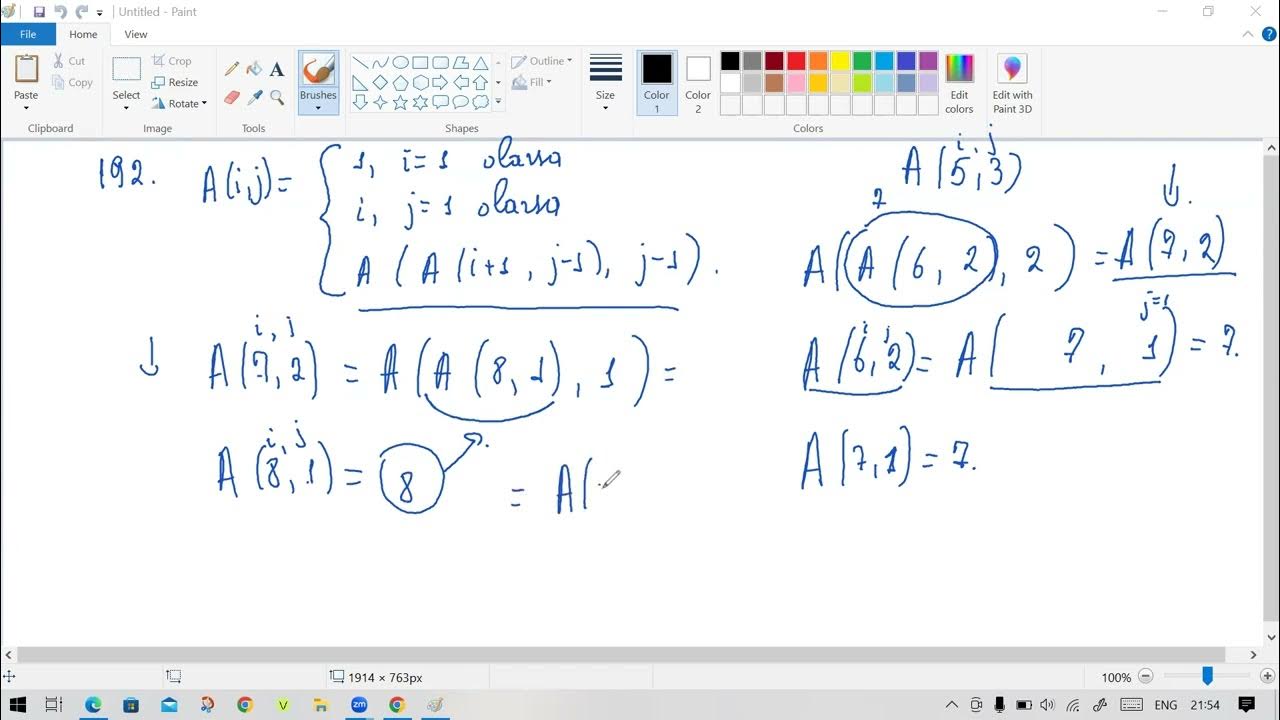 Untitled - Paint
File Home View
Paste Cut Copy Clipboard
Select Crop Resize Rotate Image
A Tools
Brushes
Outline Fill Shapes
Size
Color 1 Color 2 Edit colors Colors
Edit with Paint 3D
192. A(i,j)=
1, i=1 olarsa
i, j=1 olarsa
A(A(i+1, j-1), j-1).
↓ i, j
A(7,2) = A(A(8,1), 1) =
i, j
A(8,1) = 8
= A(
i, j
A(5,3)
7 ↓.
A(A(6,2), 2) = A(7,2)
i j j=1
A(6,2) = A( 7, 1) = 7.
A(7,1) = 7.
1914 × 763px 100%
zm ENG 21:54